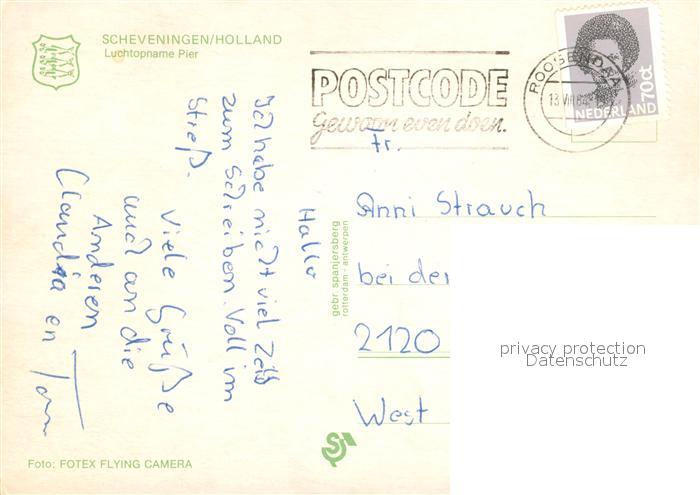 SCHEVENINGEN/HOLLAND
Luchtopname Pier
POSTCODE
Gewoon even doen.
ROOSENDAAL
NEDERLAND 70ct
Hallo
Ich habe nicht viel Zeit
zum Schreiben. Voll im
Streß.
Viele Grüße
auch an die
Anderen
Claudia en
Fr.
Anni Strauch
bei der
2120
West
gebr spanjersberg
rotterdam - antwerpen
privacy protection
Datenschutz
Foto: FOTEX FLYING CAMERA